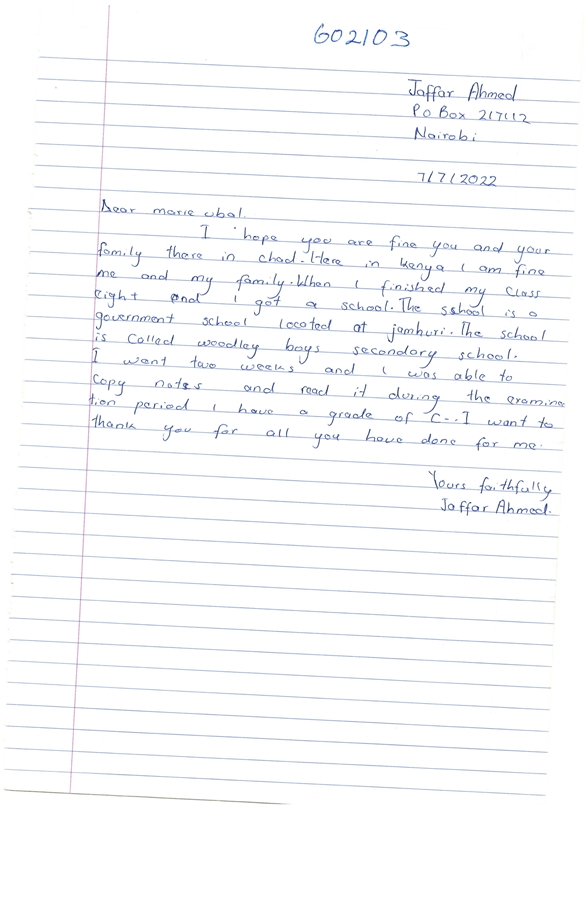 602103
Jaffar Ahmed
Po Box 217112
Nairobi
7/7/2022
Dear marie ubal.
I hope you are fine you and your
family there in chad. Here in kenya I am fine
me and my family. When I finished my class
eight and I got a school. The school is a
government school located at jamhuri. The school
is called woodley boys secondary school.
I went two weeks and I was able to
copy notes and read it during the examina
tion period I have a grade of C-. I want to
thank you for all you have done for me.
Yours faithfully
Jaffar Ahmed.